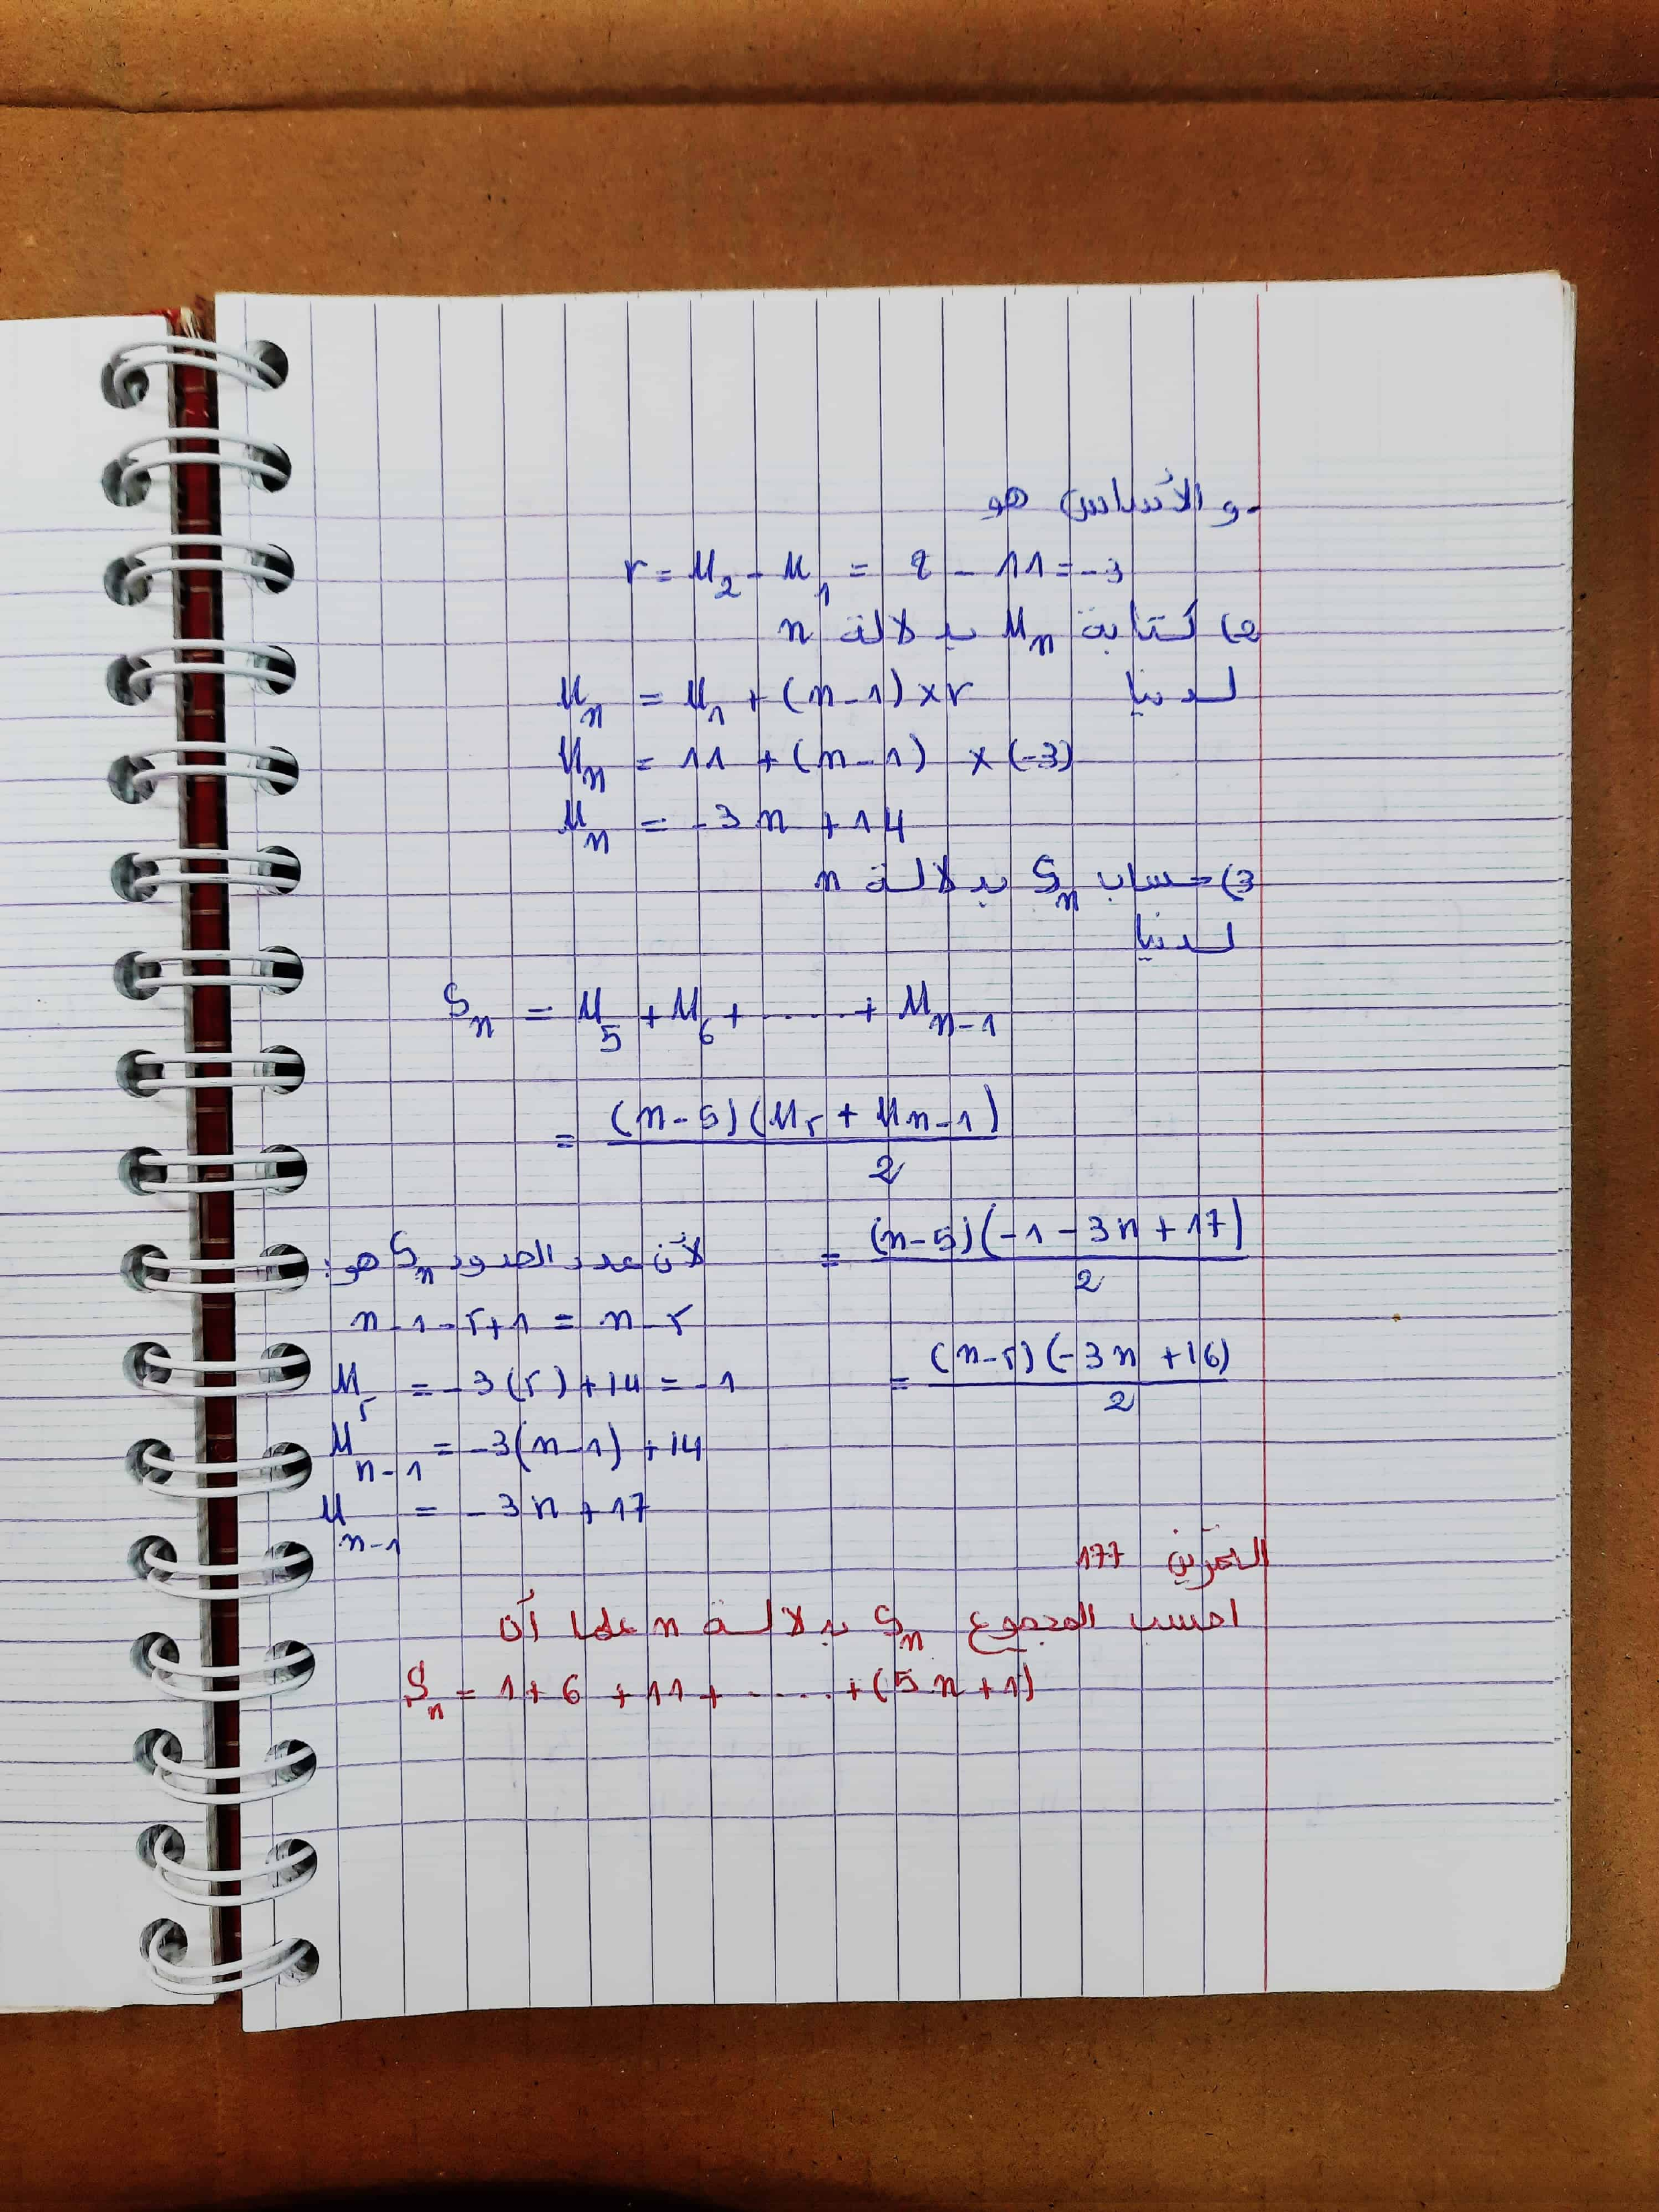 و الأساس هو
r = U₂ - U₁ = 8 - 11 = -3
2) كتابة Uₙ بدلالة n
لدينا Uₙ = U₁ + (n-1) × r
Uₙ = 11 + (n-1) × (-3)
Uₙ = -3n + 14
3) حساب Sₙ بدلالة n
لدينا
Sₙ = U₅ + U₆ + ..... + Uₙ₋₁
= (n-5)(U₅ + Uₙ₋₁) / 2
= (n-5)(-1-3n+17) / 2
= (n-5)(-3n+16) / 2
لأن عدد الحدود Sₙ هو:
n-1-5+1 = n-5
U₅ = -3(5)+14 = -1
Uₙ₋₁ = -3(n-1)+14
Uₙ₋₁ = -3n+17
التمرين 177
احسب المجموع Sₙ بدلالة n علما أن
Sₙ = 1+6+11+.....+(5n+1)